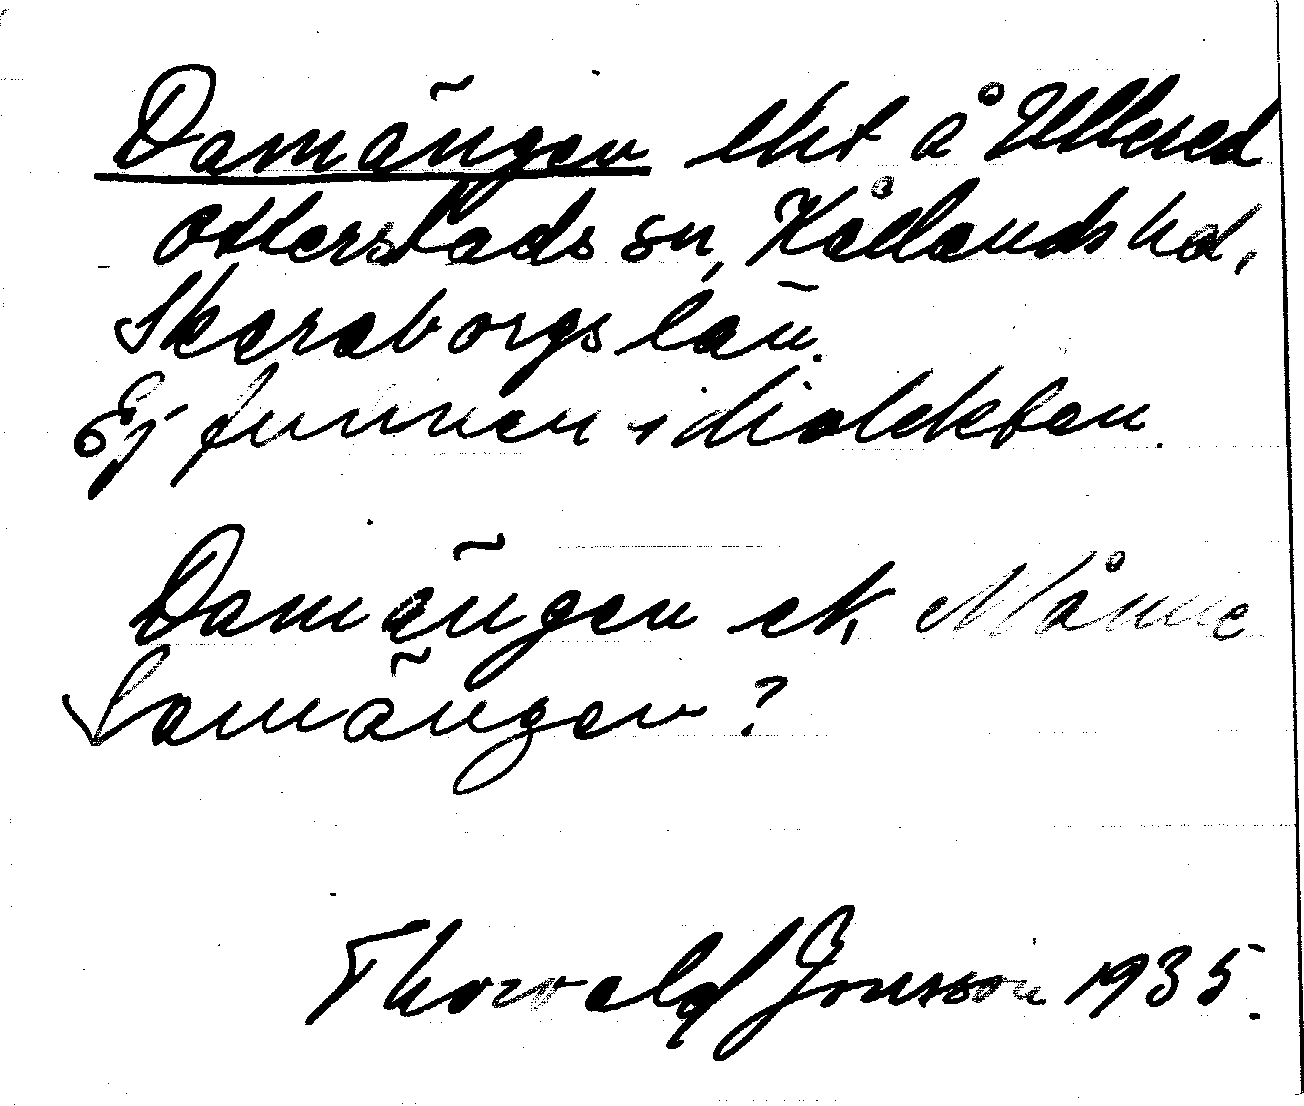 Damängen ekt å Ullered
Otterstads sn, Kållands hd,
Skaraborgs län.
Ej funnen i dialekten.
Damängen ek, Månne
Lamängen?
Thorvald Jonsson 1935.